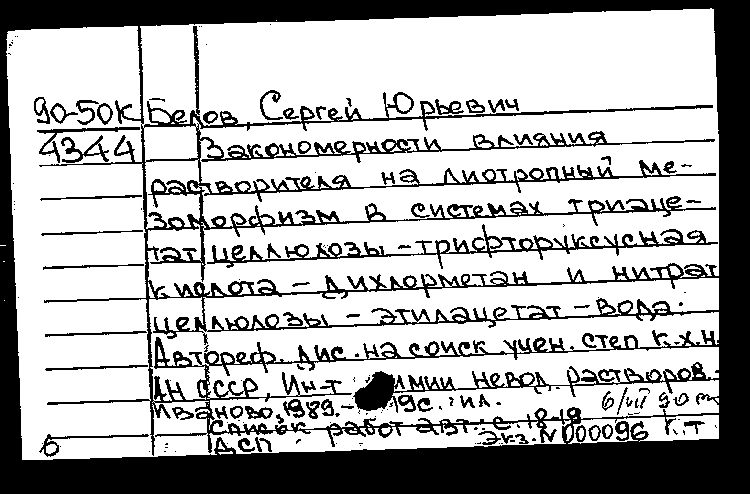 90-50К Белов, Сергей Юрьевич
4344 Закономерности влияния
растворителя на лиотропный ме-
зоморфизм в системах триаце-
тат целлюлозы - трифторуксусная
кислота - дихлорметан и нитрат
целлюлозы - этилацетат - вода:
Автореф. дис. на соиск. учен. степ. к.х.н.
АН СССР, Ин-т химии невод. растворов.-
Иваново, 1989.- 19с.: ил. 6/VII 90
Список работ авт.: с. 18-19
ДСП Экз. N 000096 К.т
б